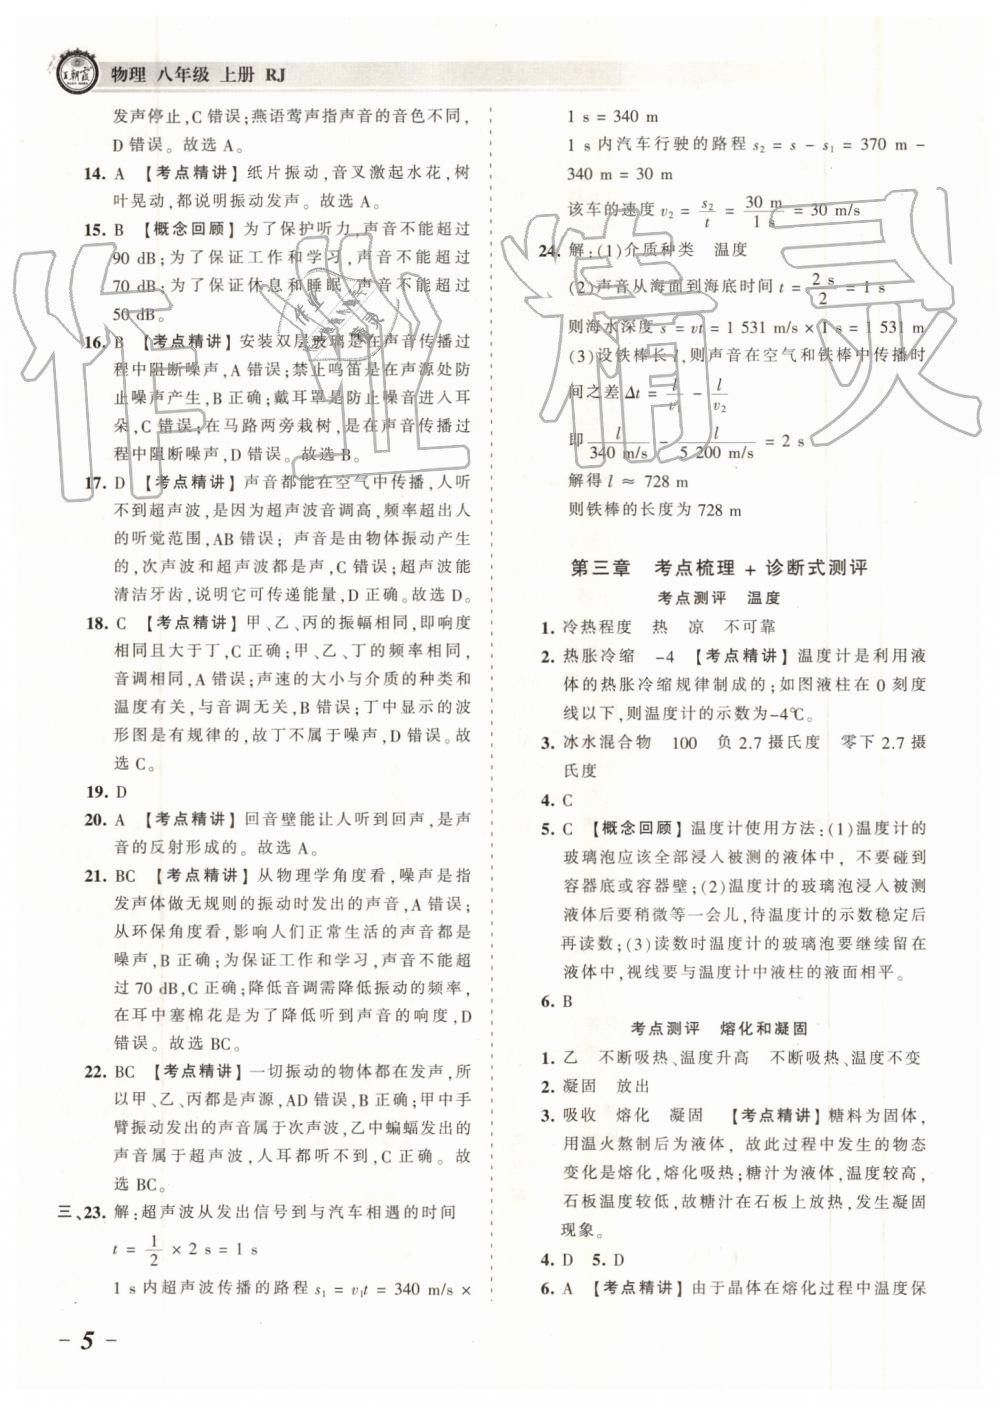 王朝霞
物理 八年级 上册 RJ
发声停止,C错误;燕语莺声指声音的音色不同,
D错误。故选A。
14. A 【考点精讲】纸片振动,音叉激起水花,树
叶晃动,都说明振动发声。故选A。
15. B 【概念回顾】为了保护听力,声音不能超过
90 dB;为了保证工作和学习,声音不能超过
70 dB;为了保证休息和睡眠,声音不能超过
50 dB。
16. B 【考点精讲】安装双层玻璃是在声音传播过
程中阻断噪声,A错误;禁止鸣笛是在声源处防
止噪声产生,B正确;戴耳罩是防止噪音进入耳
朵,C错误;在马路两旁栽树,是在声音传播过
程中阻断噪声,D错误。故选B。
17. D 【考点精讲】声音都能在空气中传播,人听
不到超声波,是因为超声波音调高,频率超出人
的听觉范围,AB错误;声音是由物体振动产生
的,次声波和超声波都是声音,C错误;超声波能
清洁牙齿,说明它可传递能量,D正确。故选D。
18. C 【考点精讲】甲、乙、丙的振幅相同,即响度
相同且大于丁,C正确;甲、乙、丁的频率相同,
音调相同,A错误;声速的大小与介质的种类和
温度有关,与音调无关,B错误;丁中显示的波
形图是有规律的,故丁不属于噪声,D错误。故
选C。
19. D
20. A 【考点精讲】回音壁能让人听到回声,是声
音的反射形成的。故选A。
21. BC 【考点精讲】从物理学角度看,噪声是指
发声体做无规则的振动时发出的声音,A错误;
从环保角度看,影响人们正常生活的声音都是
噪声,B正确;为保证工作和学习,声音不能超
过70 dB,C正确;降低音调需降低振动的频率,
在耳中塞棉花是为了降低听到声音的响度,D
错误。故选BC。
22. BC 【考点精讲】一切振动的物体都在发声,所
以甲、乙、丙都是声源,AD错误,BC正确;甲中手
臂振动发出的声音属于次声波,乙中蝙蝠发出的
声音属于超声波,人耳都听不到,C正确。故
选BC。
三、23. 解:超声波从发出信号到与汽车相遇的时间
t = 1/2 × 2 s = 1 s
1 s内超声波传播的路程 s₁ = v₁t = 340 m/s ×
1 s = 340 m
1 s内汽车行驶的路程 s₂ = s − s₁ = 370 m−
340 m = 30 m
该车的速度 v₂ = s₂/t = 30 m/1 s = 30 m/s
24. 解:(1)介质种类 温度
(2)声音从海面到海底用时间 t = 2 s/2 = 1 s
则海水深度 s = vt = 1 531 m/s × 1 s = 1 531 m
(3)设铁棒长 l,则声音在空气和铁棒中传播时
间之差 Δt = l/v₁ − l/v₂
即 l/340 m/s − l/5 200 m/s = 2 s
解得 l ≈ 728 m
则铁棒的长度为 728 m
第三章 考点梳理 + 诊断式测评
考点测评 温度
1. 冷热程度 热 凉 不可靠
2. 热胀冷缩 −4 【考点精讲】温度计是利用液
体的热胀冷缩规律制成的;如图液柱在0刻度
线以下,则温度计的示数为−4℃。
3. 冰水混合物 100 负2.7摄氏度 零下2.7摄
氏度
4. C
5. C 【概念回顾】温度计使用方法:(1)温度计的
玻璃泡应该全部浸入被测的液体中,不要碰到
容器底或容器壁;(2)温度计的玻璃泡浸入被测
液体后要稍微等一会儿,待温度计的示数稳定后
再读数;(3)读数时温度计的玻璃泡要继续留在
液体中,视线要与温度计中液柱的液面相平。
6. B
考点测评 熔化和凝固
1. 乙 不断吸热、温度升高 不断吸热、温度不变
2. 凝固 放出
3. 吸收 熔化 凝固 【考点精讲】糖料为固体,
用温火熬制后为液体,故此过程中发生的物态
变化是熔化,熔化吸热;糖汁为液态,温度较高,
石板温度较低,故糖汁在石板上放热,发生凝固
现象。
4. D 5. D
6. A 【考点精讲】由于晶体在熔化过程中温度保
− 5 −
作业精灵